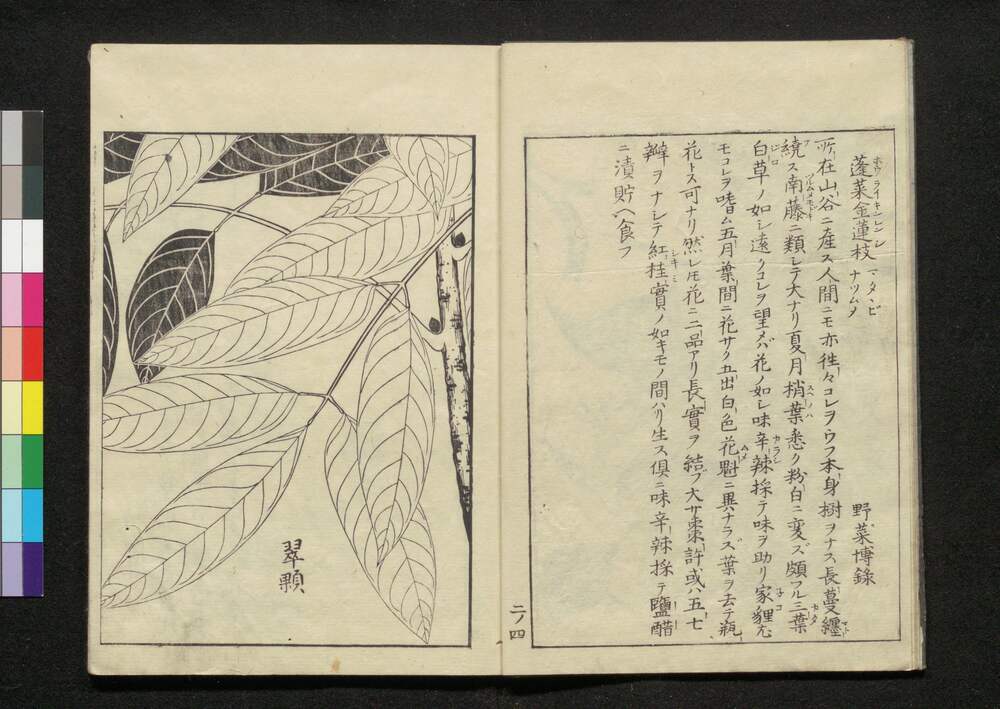 蓬莱金蓮枝 マタヽビ ナツムメ 野菜博録
所在山谷ニ産ス人間ニモ亦徃々コレヲウフ本身樹ヲナス長蔓纏
繞ス南藤ニ類シテ大ナリ夏月梢葉悉ク粉白ニ変ズ頗フル三葉
白草ノ如シ遠クコレヲ望メバ花ノ如シ味辛辣採テ味ヲ助リ家狸尤
モコレヲ嗜ム五月葉間ニ花サク五出白色花 ニ異ナラズ葉ヲ去テ瓶
花トス可ナリ然レ𪜈花ニ二品アリ長實ヲ結ブ大サ棗許或ハ五七
瓣ヲナシテ紅桂實ノ如キモノ間ハリ生ス倶ニ味辛辣採テ鹽醋
ニ漬貯ヘ食フ
二ノ四
翠顆